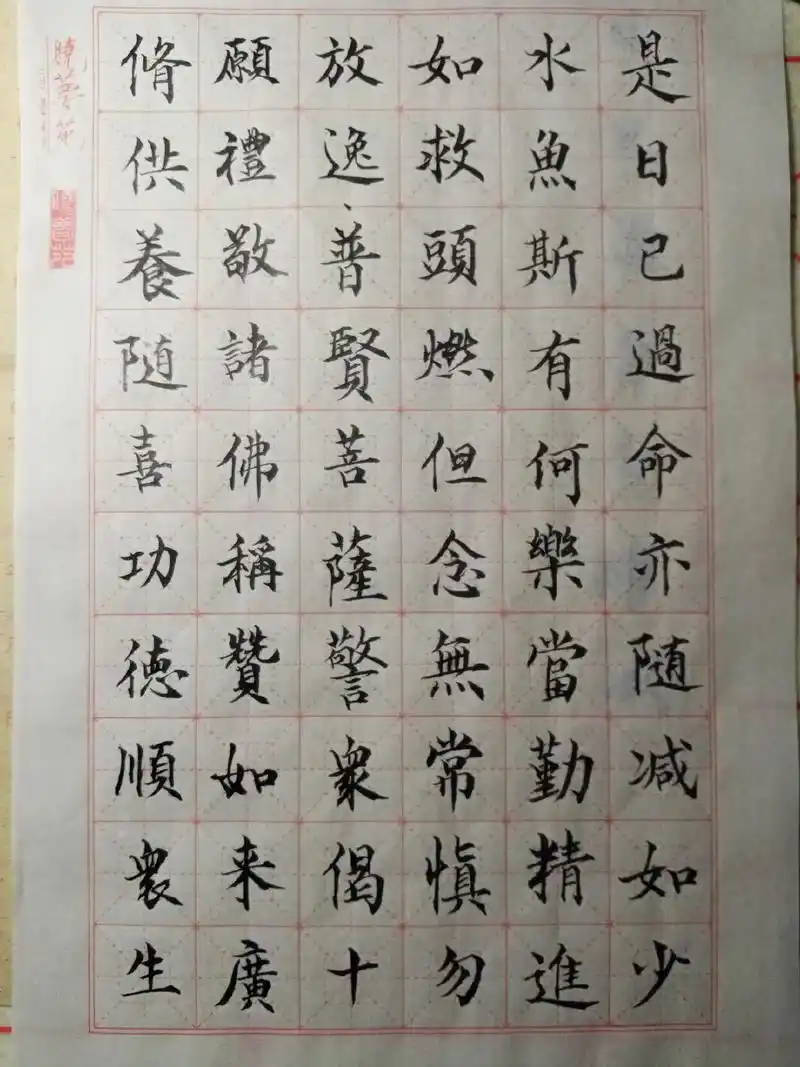 是日已過命亦隨減如少
水魚斯有何樂當勤精進
如救頭燃但念無常慎勿
放逸、普賢菩薩警衆偈十
願禮敬諸佛稱贊如来廣
脩供養随喜功德順衆生